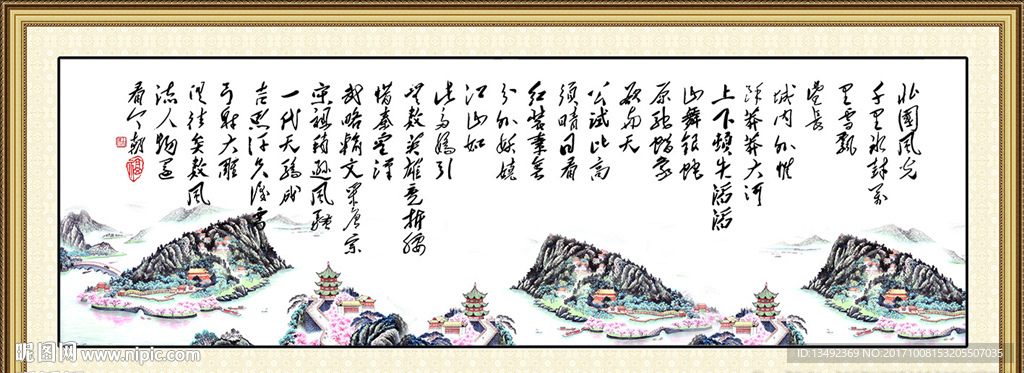 北國風光
千里冰封萬
里雪飄
望長
城内外惟
餘莽莽大河
上下頓失滔滔
山舞銀蛇
原馳蠟象
欲與天
公試比高
須晴日看
紅裝素裹
分外妖嬈
江山如
此多嬌引
無數英雄競折腰
惜秦皇漢
武略輸文采唐宗
宋祖稍遜風騷
一代天驕成
吉思汗只識彎
弓射大雕
俱往矣數風
流人物還
看今朝
昵图网 www.nipic.com
ID:13492369 NO:20171008153205507035